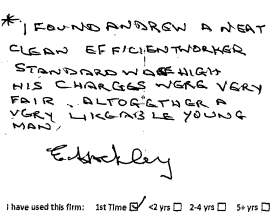 * I FOUND ANDREW A NEAT
CLEAN EFFICIENT WORKER
STANDARD WAS HIGH
HIS CHARGES WERE VERY
FAIR. ALTOGETHER A
VERY LIKEABLE YOUNG
MAN.
I have used this firm: 1st Time ☑ <2 yrs ☐ 2-4 yrs ☐ 5+ yrs ☐